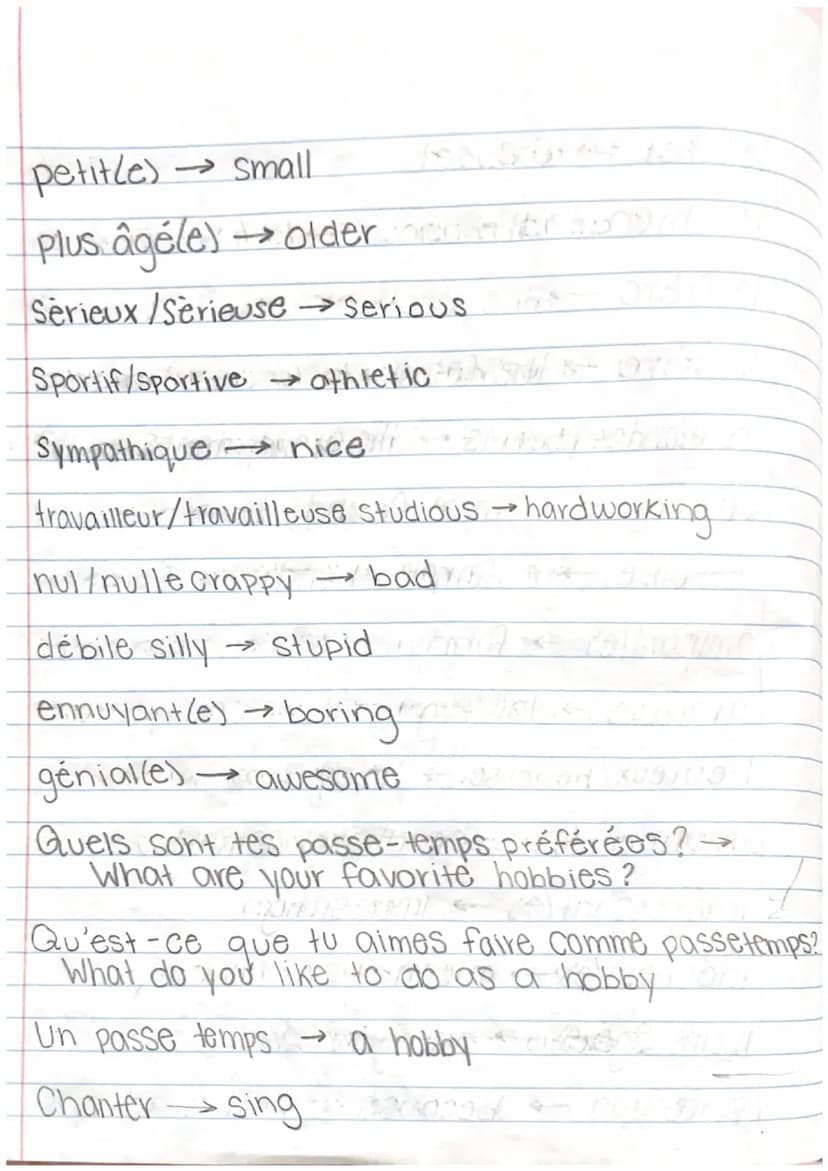 petit(e) → small
plus âgé(e) → older
Sèrieux / Sèrieuse → serious
Sportif/sportive → athletic
Sympathique → nice
travailleur/travailleuse studious → hardworking
nul/nulle crappy → bad
débile silly → stupid
ennuyant(e) → boring
génial(e) → awesome
Quels sont tes passe-temps préférées? →
What are your favorite hobbies?
Qu'est-ce que tu aimes faire comme passetemps?
What do you like to do as a hobby
Un passe temps → a hobby
Chanter → sing